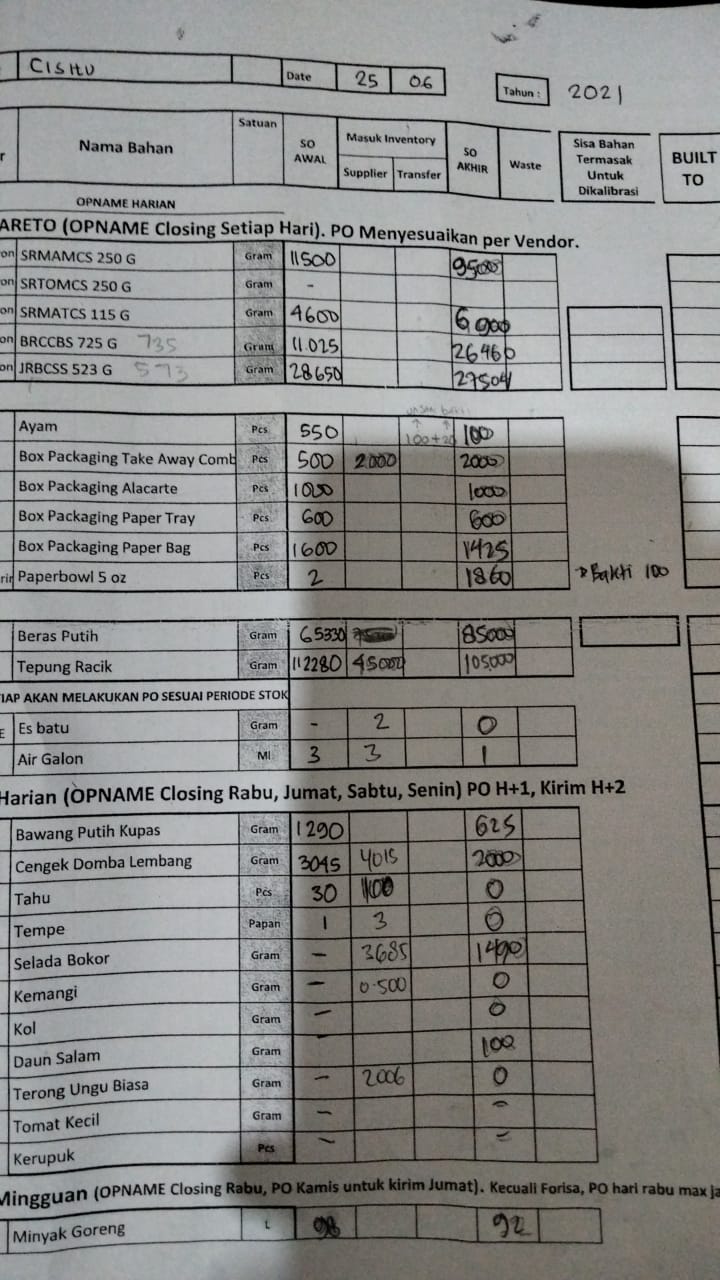 CISITU Date 25 06 Tahun : 2021
r Nama Bahan Satuan SO AWAL Masuk Inventory Supplier Transfer SO AKHIR Waste Sisa Bahan Termasak Untuk Dikalibrasi BUILT TO
OPNAME HARIAN
ARETO (OPNAME Closing Setiap Hari). PO Menyesuaikan per Vendor.
on SRMAMCS 250 G Gram 11500
on SRTOMCS 250 G Gram -
on SRMATCS 115 G Gram 4600 6900
on BRCCBS 725 G 735 Gram 11.025 26460
on JRBCSS 523 G 573 Gram 28650 27504
Ayam Pcs 550 100+20 100
Box Packaging Take Away Comb Pcs 500 2000 2000
Box Packaging Alacarte Pcs 1000 1000
Box Packaging Paper Tray Pcs 600 600
Box Packaging Paper Bag Pcs 1600 1425
rir Paperbowl 5 oz Pcs 2 1860 → Bakti 100
Beras Putih Gram 65330 85000
Tepung Racik Gram 112280 45000 105,000
IAP AKAN MELAKUKAN PO SESUAI PERIODE STOK
E Es batu Gram - 2 0
Air Galon Ml 3 3 1
Harian (OPNAME Closing Rabu, Jumat, Sabtu, Senin) PO H+1, Kirim H+2
Bawang Putih Kupas Gram 1290 625
Cengek Domba Lembang Gram 3045 4015 2000
Tahu Pcs 30 100 0
Tempe Papan 1 3 0
Selada Bokor Gram - 3685 1490
Kemangi Gram - 0.500 0
Kol Gram - 0
Daun Salam Gram 100
Terong Ungu Biasa Gram - 2006 0
Tomat Kecil Gram - -
Kerupuk Pcs - -
Mingguan (OPNAME Closing Rabu, PO Kamis untuk kirim Jumat). Kecuali Forisa, PO hari rabu max ja
Minyak Goreng L 98 92